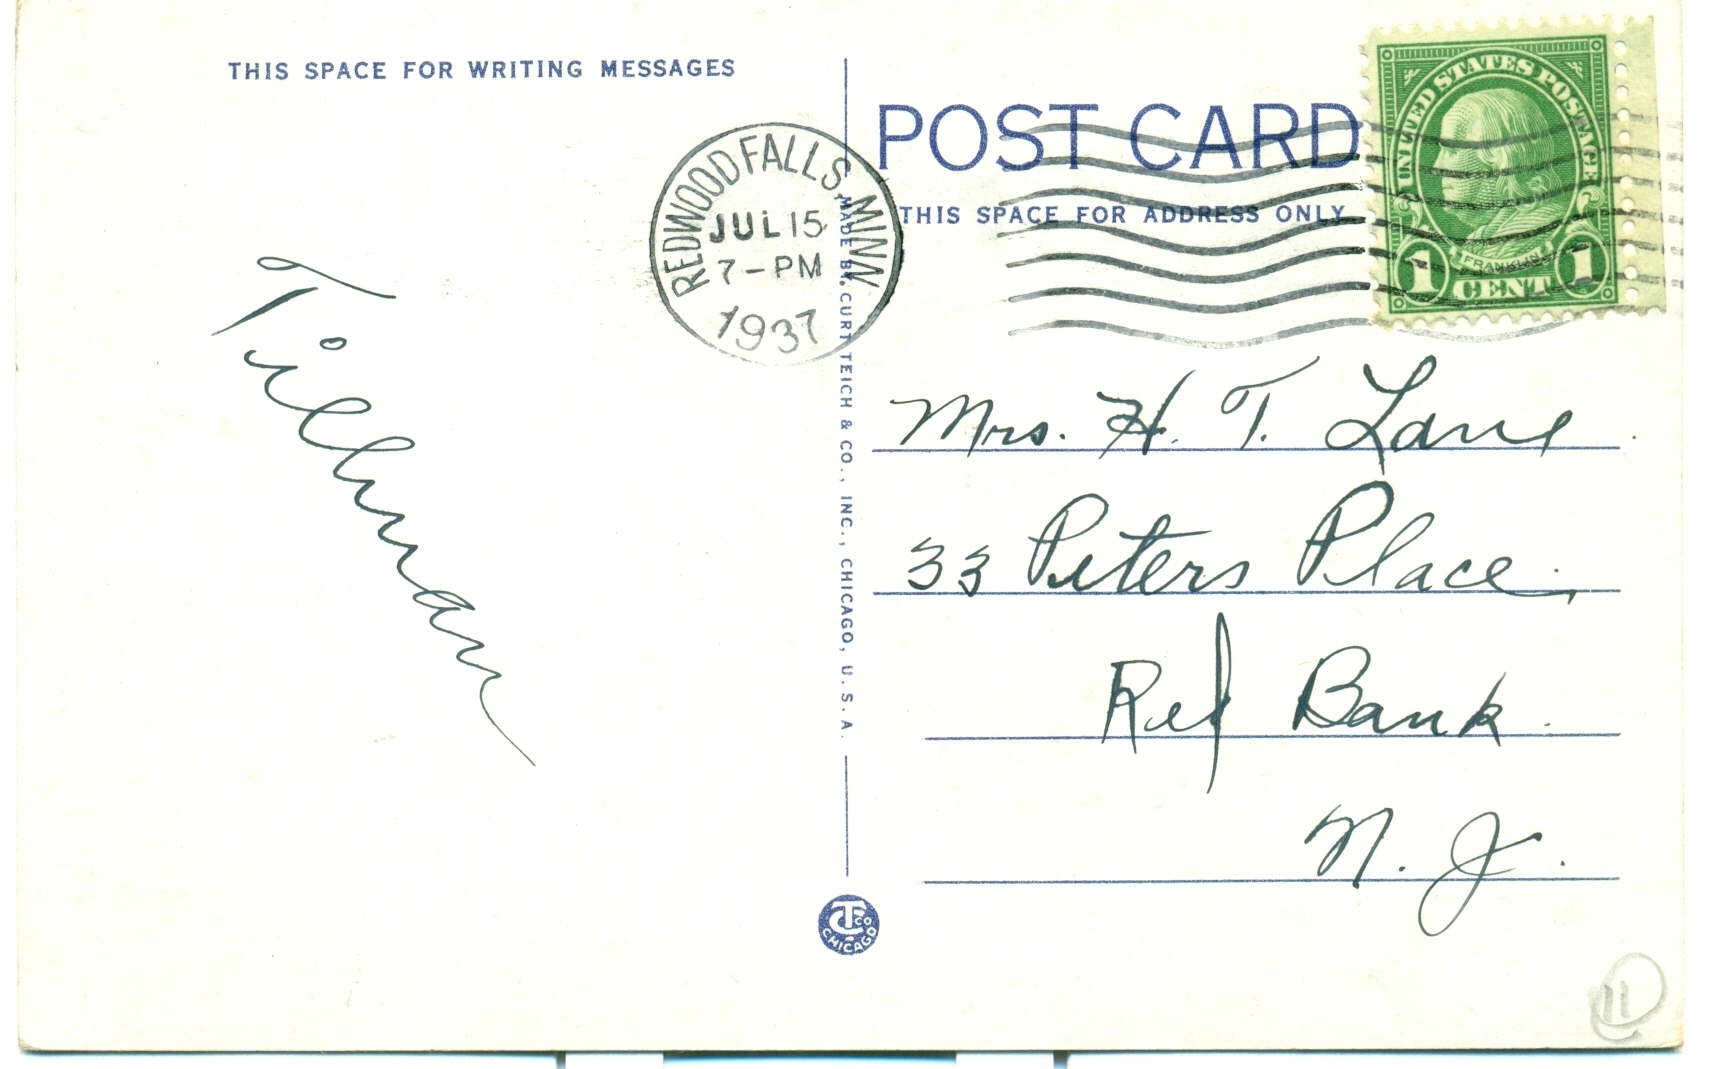 THIS SPACE FOR WRITING MESSAGES
POST CARD
THIS SPACE FOR ADDRESS ONLY
REDWOOD FALLS, MINN.
JUL 15
7-PM
1937
UNITED STATES POSTAGE
FRANKLIN
1 CENT 1
Tillman
MADE BY CURT TEICH & CO., INC., CHICAGO, U.S.A.
Mrs. H. T. Lane
33 Peters Place,
Red Bank
N. J.
CT CO
CHICAGO
11